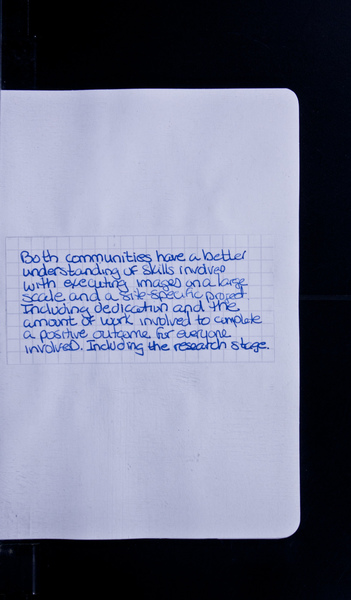 Both communities have a better
understanding of skills involved
with executing images on a large
scale and a site-specific project
Including dedication and the
amount of work involved to complete
a positive outcome for everyone
involved. Including the research stage.